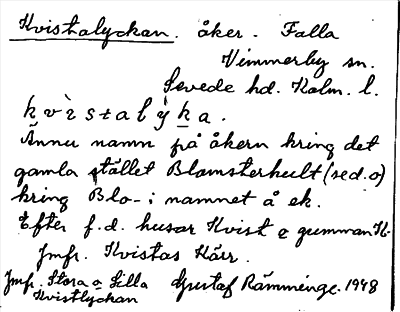 Kvistalyckan. åker. Falla
Vimmerby sn.
Sevede hd. Kalm. l.
kvìstalỳka.
Ännu namn på åkern kring det
gamla stället Blomsterhult (sed. o)
kring Blo- i namnet å ek.
Efter f.d. husar Kvist o gumman K.
Jmfr. Kvistas Kärr.
Jmfr. Stora o Lilla Gustaf Rämminge. 1948
Kvistlyckan